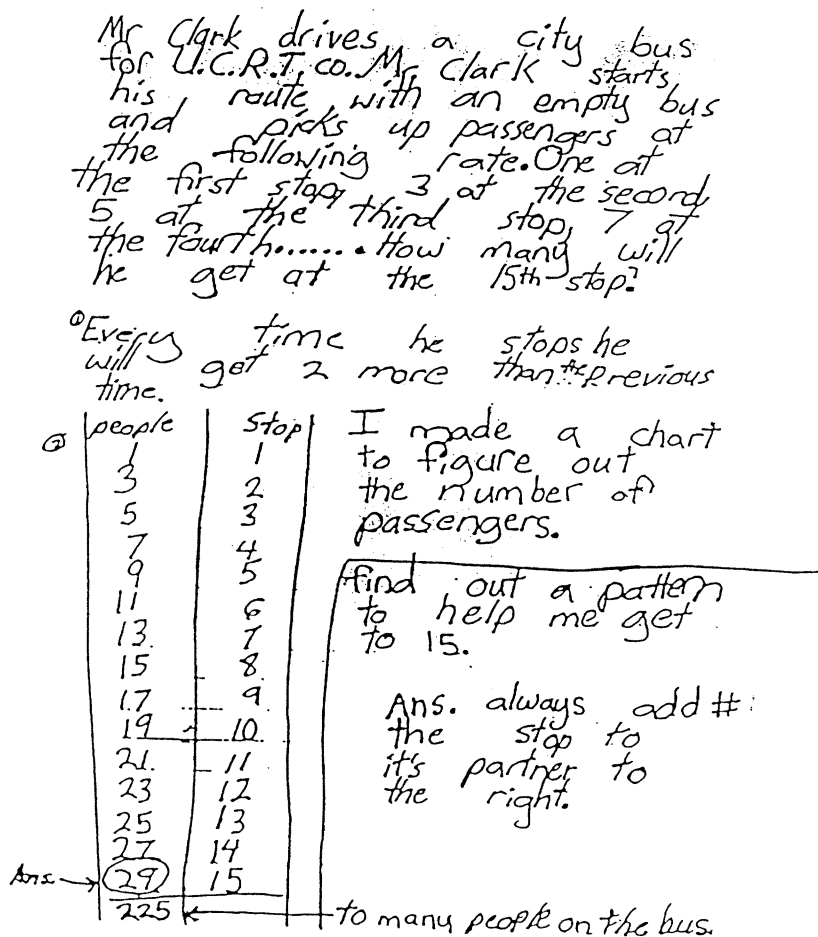 Mr Clark drives a city bus
for U.C.R.T. co. Mr. Clark starts
his route with an empty bus
and picks up passengers at
the following rate. One at
the first stop, 3 at the second,
5 at the third stop, 7 at
the fourth....... How many will
he get at the 15th stop?
① Every time he stops he
will get 2 more than the previous
time.
② people Stop
1 1
3 2
5 3
7 4
9 5
11 6
13 7
15 8
17 9
19 10
21 11
23 12
25 13
27 14
Ans → 29 15
225 ← to many people on the bus.
I made a chart
to figure out
the number of
passengers.
find out a pattern
to help me get
to 15.
Ans. always add #
the stop to
it's partner to
the right.